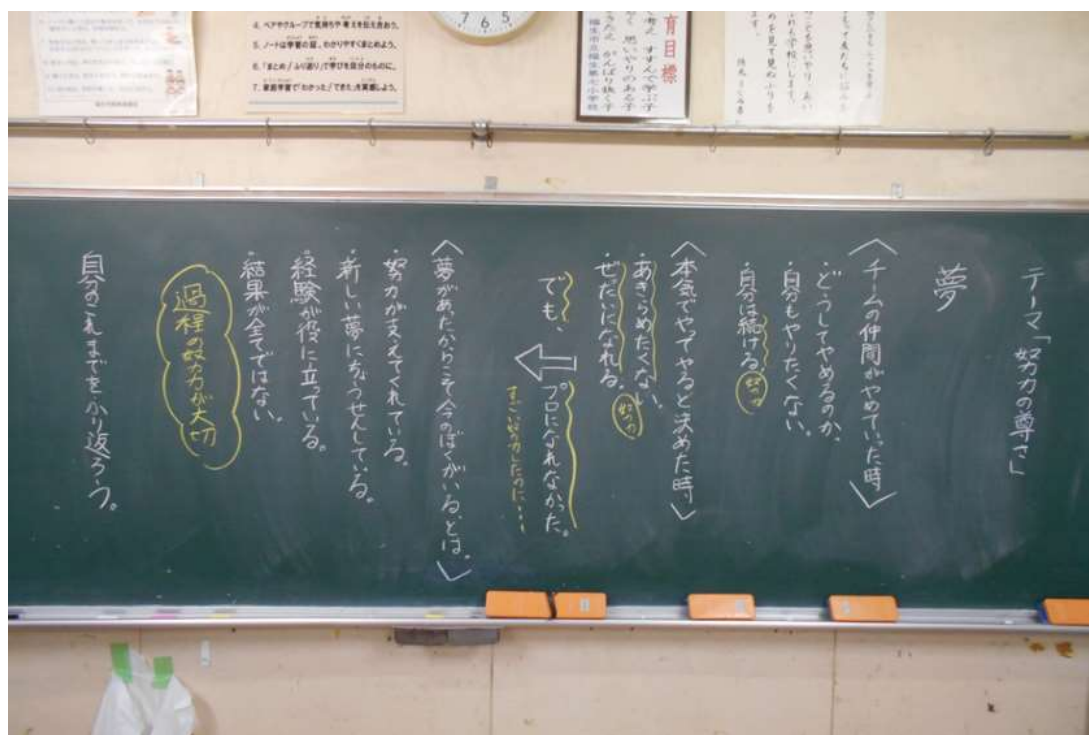 4. ペアやグループで気持ちや考えを伝え合おう。
5. ノートは学習の証。わかりやすくまとめよう。
6. 「まとめ/ふり返り」で学びを自分のものに。
7. 家庭学習で「わかった/できた」を実感しよう。
7 6 5
育目標
考え すすんで学ぶ子
て 思いやりのある子
きたえ がんばり抜く子
福生市立福生第七小学校
テーマ「努力の尊さ」
夢
〈チームの仲間がやめていった時〉
・どうしてやめるのか。
・自分もやりたくない。
・自分は続ける。 努力
〈本気でやってやると決めた時〉
・あきらめたくない。
・ぜったいになれる。 努力
でも、
プロになれなかった。
すごい努力したのに・・・
〈夢があったからこそ今のぼくがいる、とは。〉
・努力が支えてくれている。
・新しい夢にちょうせんしている。
・経験が役に立っている。
・結果が全てではない。
過程の努力が大切
自分のこれまでをふり返ろう。